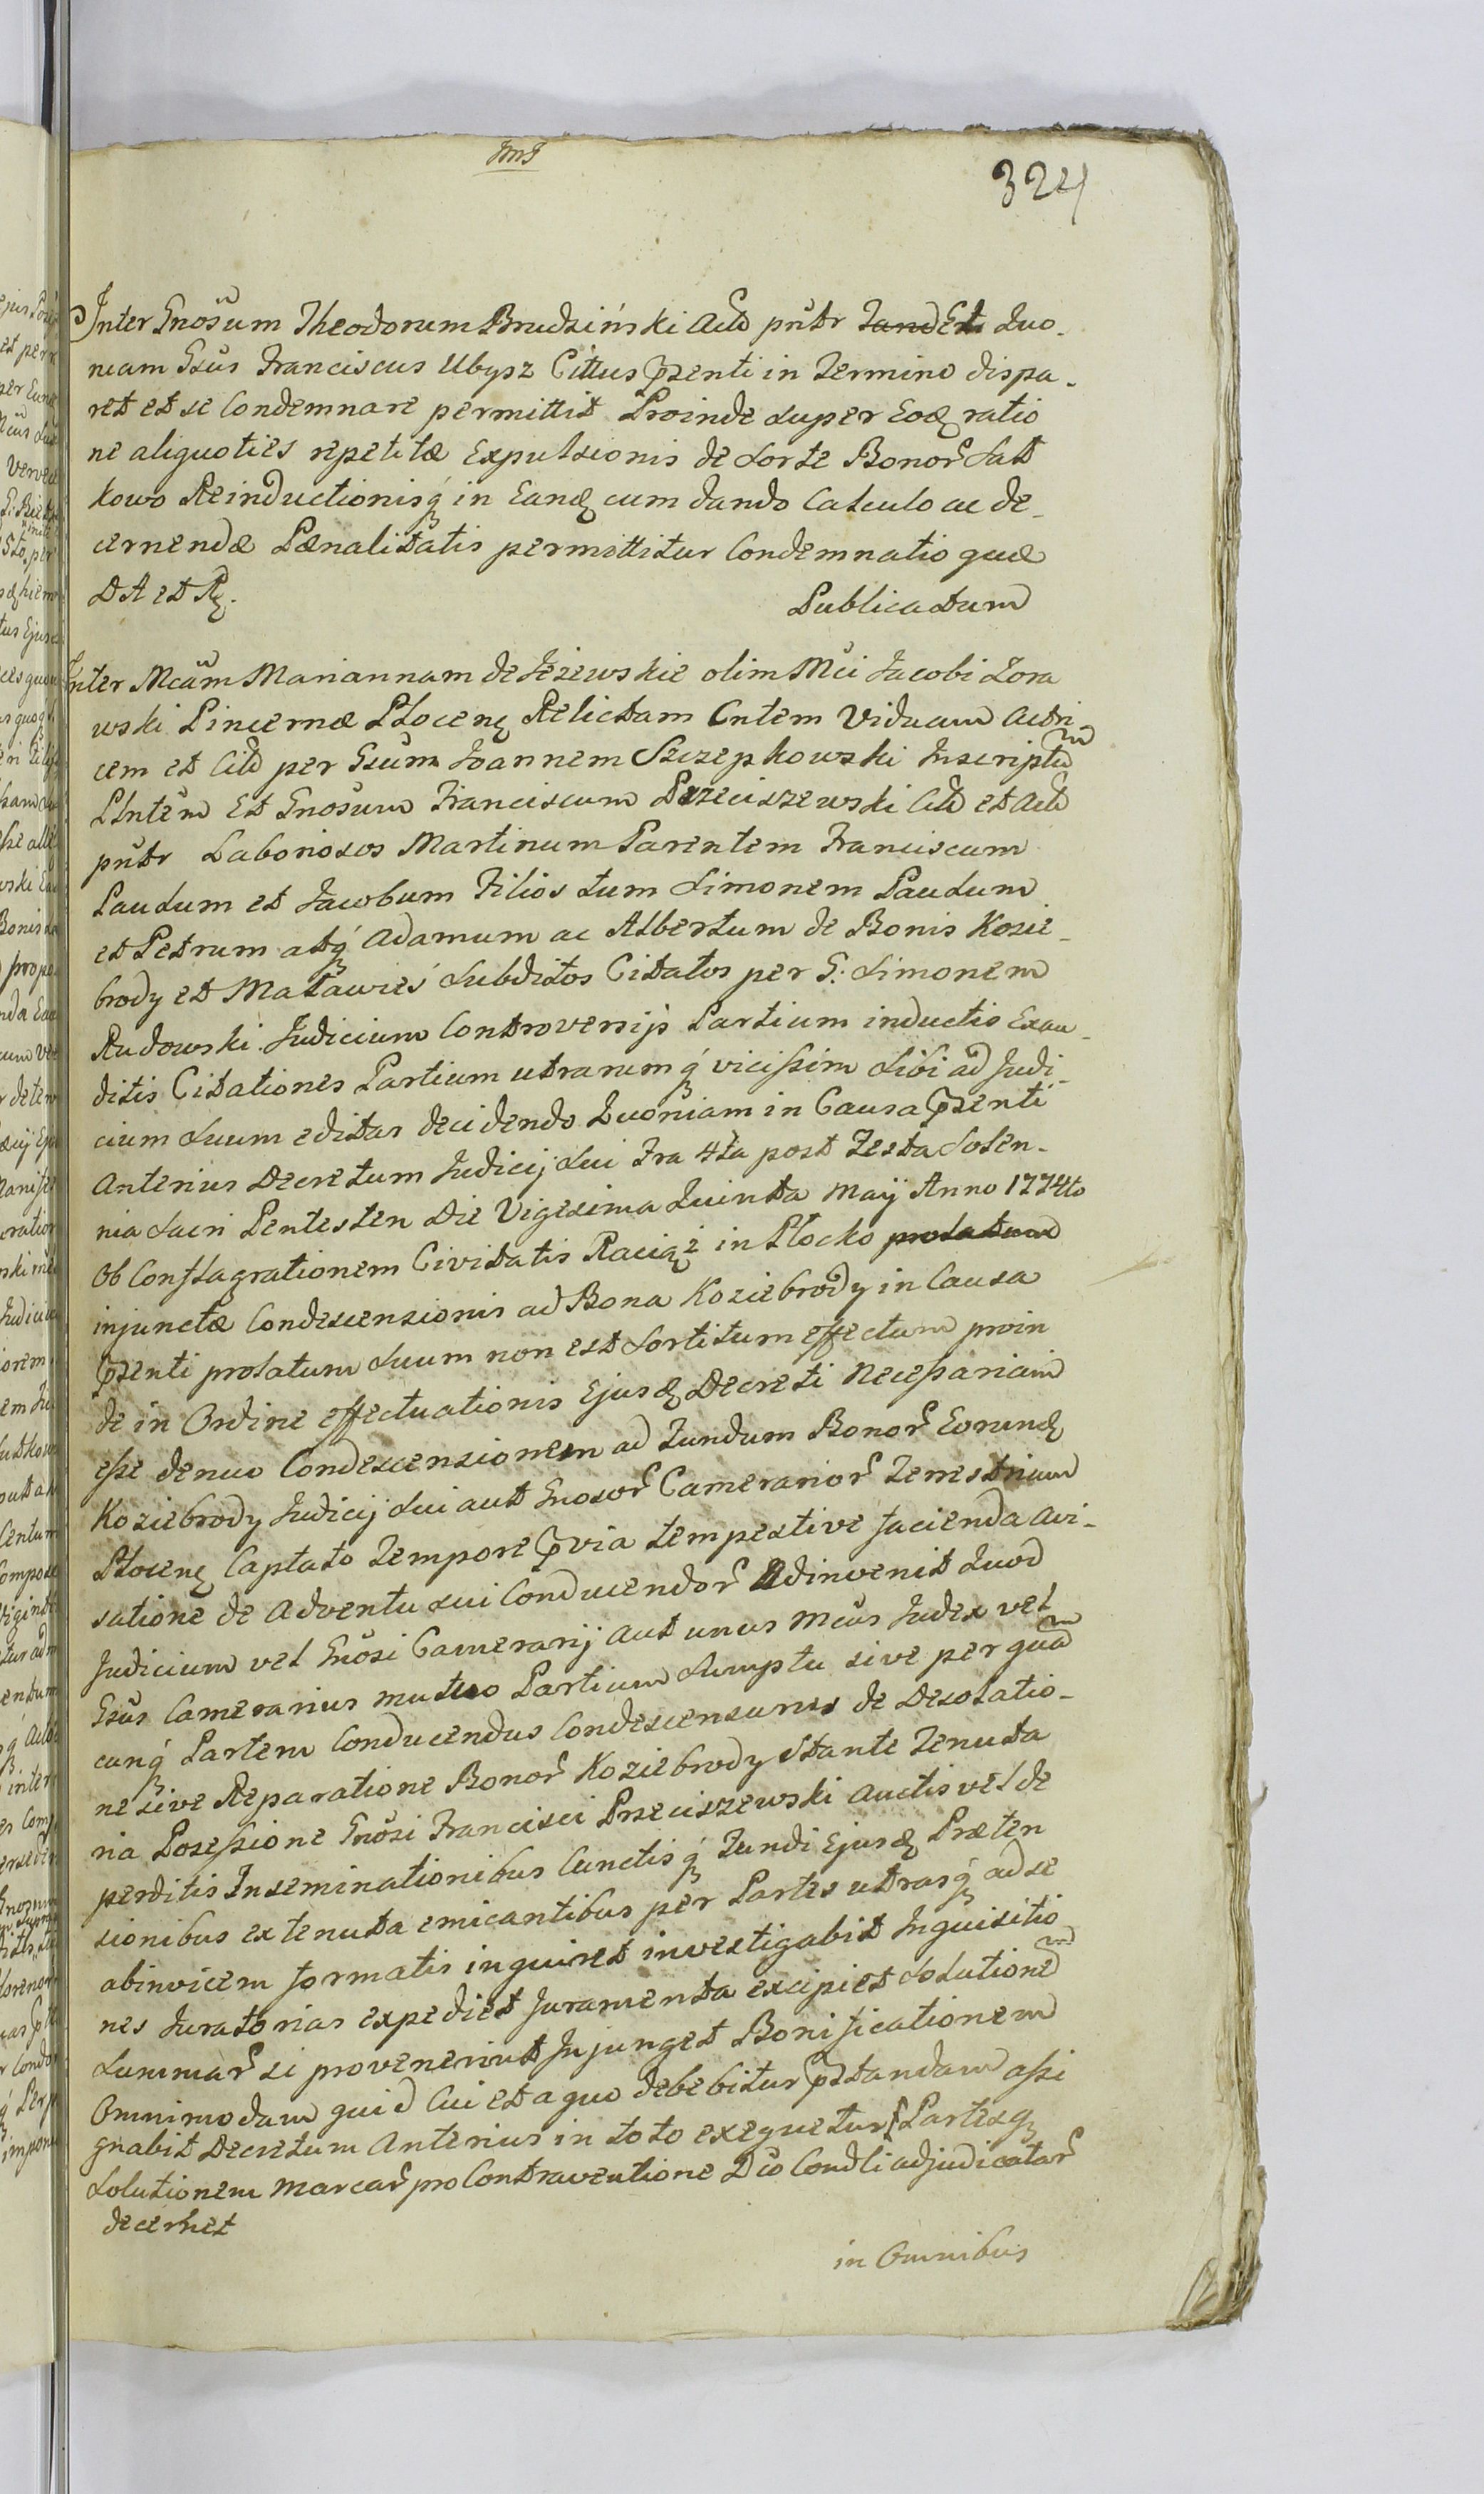 324
Inter Gnosum Theodorum Brudziński Actō pnūtr Et Quo-
niam Gsus Franciscus Ubysz Cittus pzenti in Termino dispa-
ret et se Condemnare permittit Proinde super Eoq ratio
ne aliquoties repetitæ Expulsionis de Sorte Bonor Sut
kowo Reinductionisq in Eanq cum dando Calculo ac de-
cernendæ Pænalitatis permittitur Condemnatio quæ
DA et Rq.
Publicatum
Inter Mcām Mariannam de Jeżewskie olim Mci Jacobi Zora
wski Pincernæ Plocenq Relictam Cntem Viduam Actri-
cem et Citō per Gsum Joannem Szczepkowski Inscriptū
Plntēm Et Gnosum Franciscum Przeciszewski Citō et Actō
pnūtr Laboriosos Martinum Parentem Franciscum
Paulum et Jacobum Filios tum Simonem Paulum
et Petrum atq Adamum ac Albertum de Bonis Kozie-
brody et Maławieś Subditos Citatos per G: Simonem
Rudowski. Judicium Controversijs Partium inductis Exau-
ditis Citationes Partium utrarumq vicissim Sibi ad Judi-
cium Suum editas decidendo Quoniam in Causa pzenti
Anterius Decretum Judicij Sui Fra 4ta post Festa Solen-
nia Sacri Pentesten Die Vigesima Quinta Maij Anno 1774to
Ob Conflagrationem Civitatis Raciąż in Płocko prolatum
injunctæ Condescensionis ad Bona Koziebrody in Causa
pzenti prolatum Suum non est Sortitum effectum proin
de in Ordine effectuationis Ejusq Decreti Necessariam
esse denuo Condescensionem ad Fundum Bonor Eorunq
Koziebrody Judicij Sui aut Gnosor Camerarior Terrestrium
Plocenq Captato Tempore pvia tempestive facienda avi-
satione de Adventu sui Conducendor Adinvenit Quod
Judicium vel Gnosi Camerarij aut unus Mcus Judex vel
Gsus Camerarius mutuo Partium Sumptu sive per quā
cunq Partem Conducendus Condescensurus de Desolatio-
ne sive Reparatione Bonor Koziebrody Stante Tenuta
ria Posessione Gnosi Francisci Przeciszewski Auctis vel de
perditis Inseminationibus Cunctisq Fundi Ejusq Præten
sionibus ex tenuta emicantibus per Partes utrasq ad se
abinvicem formatis inquiret investigabit Inquisitio
nes Juratorias expediet Juramenta excipiet Solutionē
Summar si provenerint Injunget Bonificationem
Omnimodam quid Cui et a quo debebitur pstandam assi
gnabit Decretum Anterius in toto exequetur Partesq
Solutionem Marcar pro Contraventione Dco Condli adjudicatar
decernet
in Omnibus